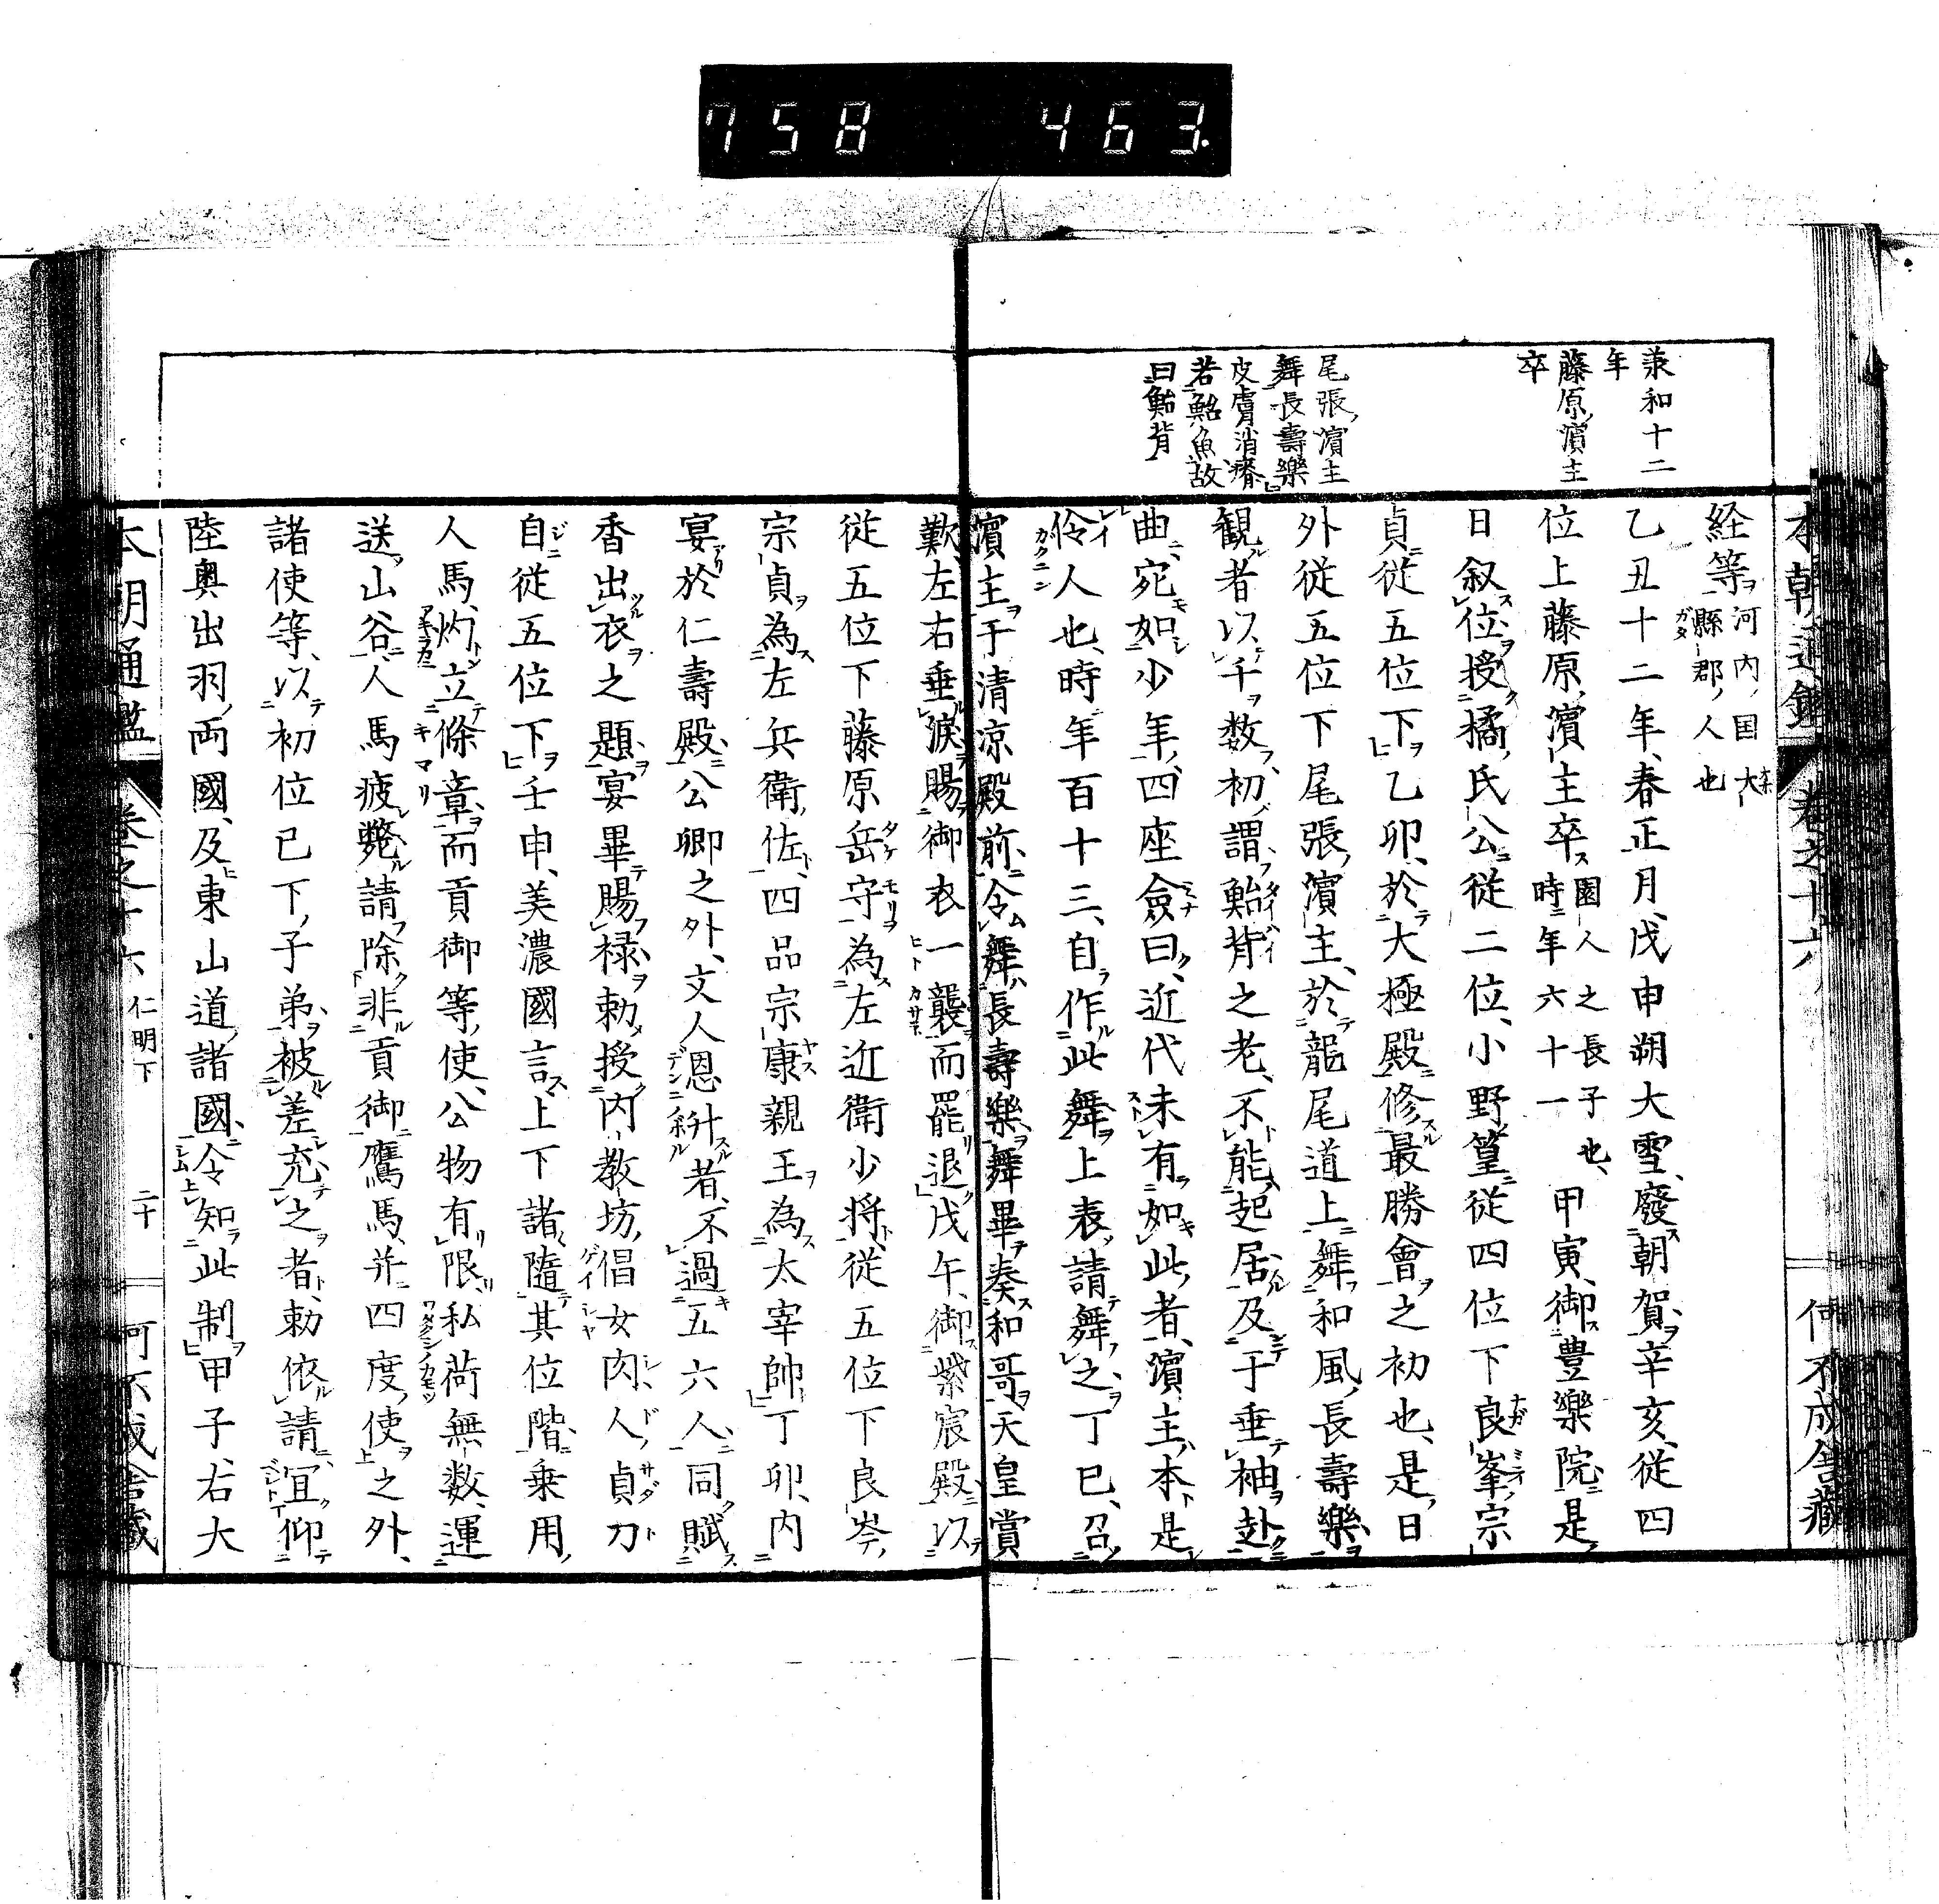 758 463.
本朝通鑑 卷之十六 何不成舎蔵
承和十二
年
藤原濵主
卒
尾張濵主
舞長壽樂
皮膚消瘠
若鮐魚故
曰鮐背
経等河内国大
縣郡人也
乙丑十二年、春正月、戊申朔大雪、廢朝賀、辛亥、従四
位上藤原濵主卒園人之長子也、時年六十一甲寅、御豊樂院、是
日叙位、授橘氏公従二位、小野篁従四位下良峯宗
貞従五位下、乙卯、於大極殿修最勝會之初也、是日
外従五位下尾張濵主、於龍尾道上舞和風長壽樂、
観者以千数、初謂鮐背之老、不能起居、及于垂袖赴
曲、宛如少年、四座僉曰、近代未有如此者、濵主本是
伶人也、時年百十三、自作此舞、上表請舞之、丁巳、召
濵主于清凉殿前、令舞長壽樂、舞畢奏和哥、天皇賞
歎、左右垂淚、賜御衣一襲而罷退、戊午、御紫宸殿、以
従五位下藤原岳守為左近衛少将、従五位下良岑
宗貞為左兵衛佐、四品宗康親王為太宰帥、丁卯、内
宴於仁壽殿、公卿之外、文人恩昇者、不過五六人、同賦
香出衣之題、宴畢賜禄、勅授内教坊倡女肉人貞刀
自従五位下、壬申、美濃國言、上下諸隨其位階乗用
人馬、灼立條章、而貢御等使、公物有限、私荷無数、運
送山谷、人馬疲斃、請除非貢御鷹馬、并四度使之外、
諸使等、以初位已下子弟、被差充之者、勅依請、宜仰
陸奥出羽両國、及東山道諸國、令知此制、甲子、右大
本朝通鑑 卷之十六 仁明下 二十 何不成舎蔵